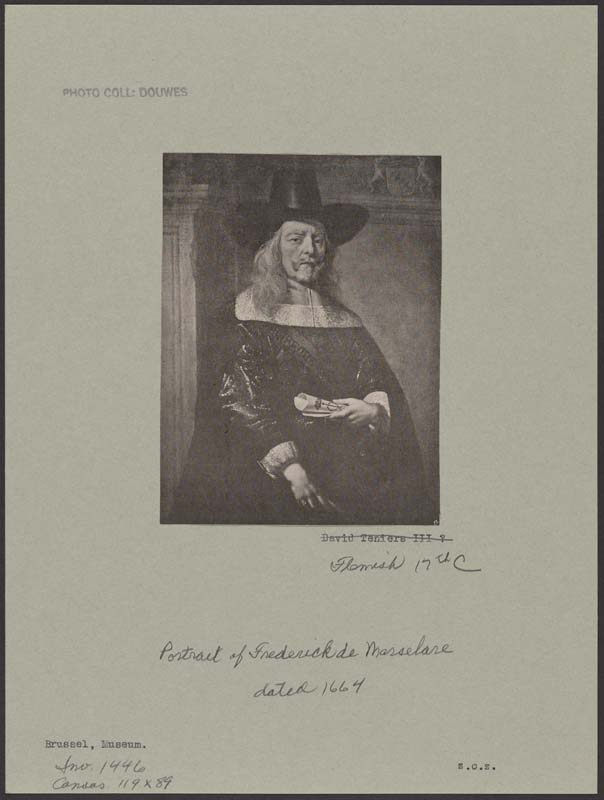 PHOTO COLL: DOUWES
David Teniers III ?
Flemish 17th C
Portrait of Frederick de Marselare
dated 1664
Brussel, Museum.
Inv. 1446
Canvas 119 x 89
z.o.z.